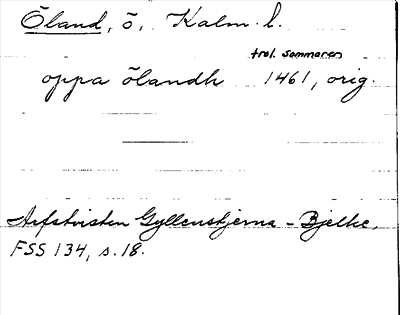 Öland, ö, Kalm. l.
trol. sommaren
oppa ölandh 1461, orig.
Arfstvisten Gyllenstjerna - Bjelke,
FSS 134, s. 18.